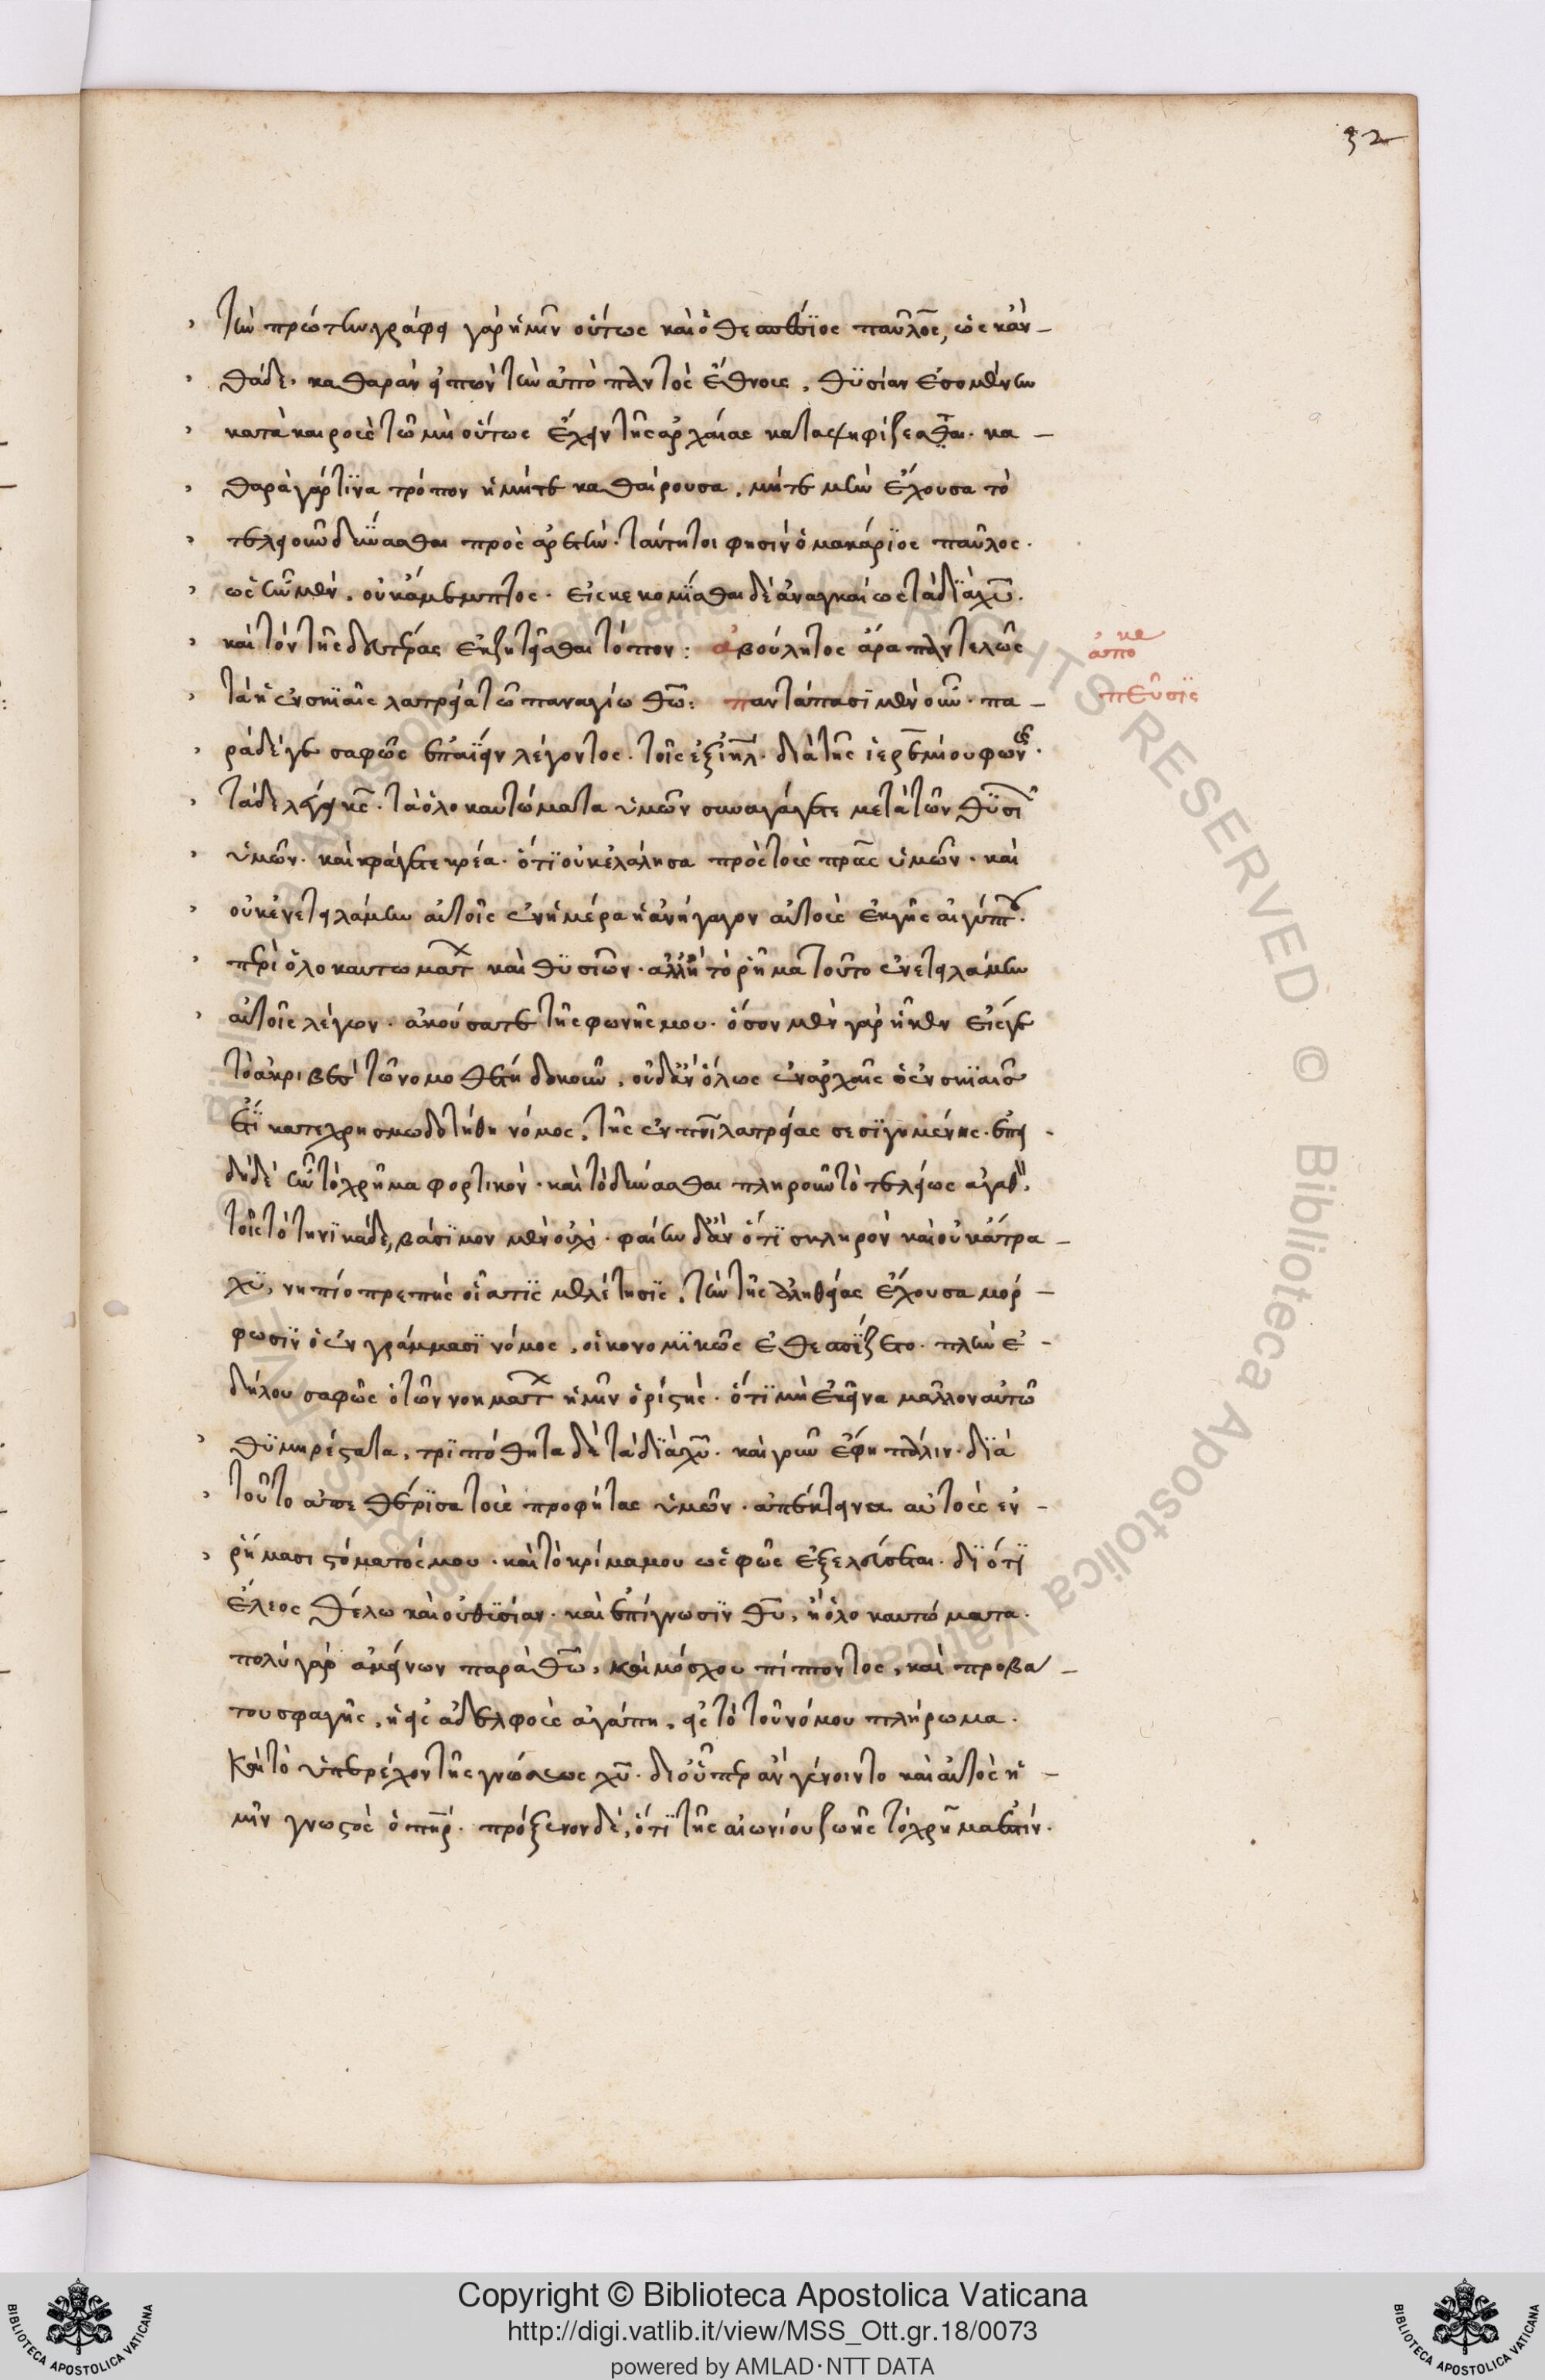 32
τὴν πρώτην γράφει γὰρ ἡμῖν οὕτως καὶ ὁ θεσπέσϊος παῦλος, ὡς κἀν-
θάδε. καθαρὰν εἰπὼν τὴν ἀπὸ παντὸς ἔθνους, θϋσίαν ἐσομένην
κατὰ καιροὺς τῶ μὴ οὕτως ἔχειν τῆς ἀρχαίας καταψηφίζεσθαι. κα-
θαρὰ γὰρ τίνα τρόπον ἡ μήτε καθαίρουσα, μήτε μὴν ἔχουσα τὸ
τελειοῦν δύνασθαι πρὸς ἀρετήν. ταύτητοι φησὶν ὁ μακάριος παῦλος.
ὡς ἦν μὲν, οὐκ ἄμεμπτος. εἰσκεκομίσθαι δὲ ἀναγκαίως τὰ δϊὰ χυ.
καὶ τὸν τῆς δευτέρας ἐκζητεῖσθαι τόπον: ἀβούλητος ἄρα παντελῶς
κε
ἀπο
τὰ ἡ ἐν σκϊαῖς λατρεία τῶ παναγίω θω: παντάπασϊ μὲν οὖν. πα-
πεῦσϊς
ράδειγε σαφῶς ἐπαΐειν λέγοντος. τοῖς ἐξ ιηλ. διὰ τῆς ἱερεμίου φωνῆς.
τάδε λέγει κς. τὰ ὁλοκαυτώματα ὑμῶν συναγάγετε μετὰ τῶν θϋσιῶν
ὑμῶν. καὶ φάγετε κρέα. ὅτϊ οὐκ ἐλάλησα πρὸς τοὺς πρας ὑμῶν. καὶ
οὐκ ἐνετειλάμην αὐτοῖς ἐν ἡμέρα ἧ ἀνήγαγον αὐτοὺς ἐκ γῆς αἰγύπτου.
περὶ ὁλοκαυτωμάτων καὶ θϋσιῶν. ἀλλ' ἢ τὸ ῥῆμα τοῦτο ἐνετειλάμην
αὐτοῖς λέγων. ἀκούσατε τῆς φωνῆς μου. ὅσον μὲν γὰρ ἧκεν εἰς γε
τὸ ἀκριβὲς τῶ νομοθέτη δοκοῦν, οὐδ' ἂν ὅλως ἐν ἀρχαῖς ὁ ἐν σκϊαῖς
ἔτϊ κατεχρησμωδοτήθη νόμος, τῆς ἐν πνϊ λατρείας σεσϊγημένης. ἐπει-
δὴ δὲ ἦν τὸ χρῆμα φορτικὸν. καὶ τὸ δύνασθαι πληροῦν τὸ τελείως ἀγαθὸν,
τοῖς τὸ τηνϊκάδε, βάσϊμον μὲν οὐχὶ. φαίην δ' ἂν ὅτϊ σκληρὸν καὶ οὐκ ἄτρα-
χϋ, νηπιοπρεπής οἷά τις μελέτησϊς, τὴν τῆς ἀληθείας ἔχουσα μόρ-
φωσϊν ὁ ἐν γράμμασϊ νόμος, οἰκονομϊκῶς ἐθεσπίζετο. πλὴν ἐ-
δήλου σαφῶς ὁ τῶν νοημάτων ἡμῖν ὁριστὴς. ὅτϊ μὴ ἐκεῖνα μᾶλλον αὐτῶ
θϋμηρέστατα, τρϊπόθητα δὲ τὰ δϊὰ χυ. καὶ γοῦν ἔφη πάλιν. δϊὰ
τοῦτο ἀπεθέρϊσα τοὺς προφήτας ὑμῶν. ἀπέκτεινα αὐτοὺς ἐν-
ῥήμασι στόματός μου. καὶ τὸ κρίμα μου ὡς φῶς ἐξελεύσεται. δϊότϊ
ἔλεος θέλω καὶ οὐ θϋσίαν. καὶ ἐπίγνωσϊν θυ, ἢ ὁλοκαυτώματα.
πολὺ γὰρ ἀμείνων παρὰ θω, καὶ μόσχου πίπτοντος, καὶ προβά-
του σφαγῆς, ἡ εἰς ἀδελφοὺς ἀγάπη, εἰς τὸ τοῦ νόμου πλήρωμα.
καὶ τὸ ὑπερέχον τῆς γνώσεως χυ. δι' οὗπερ ἂν γένοιντο καὶ αὐτὸς ἡ-
μῖν γνωστὸς ὁ πηρ. πρόξενον δὲ, ὅτϊ τῆς αἰωνίου ζωῆς τὸ χρῆμα ἐστϊν.
Copyright © Biblioteca Apostolica Vaticana
http://digi.vatlib.it/view/MSS_Ott.gr.18/0073
powered by AMLAD·NTT DATA